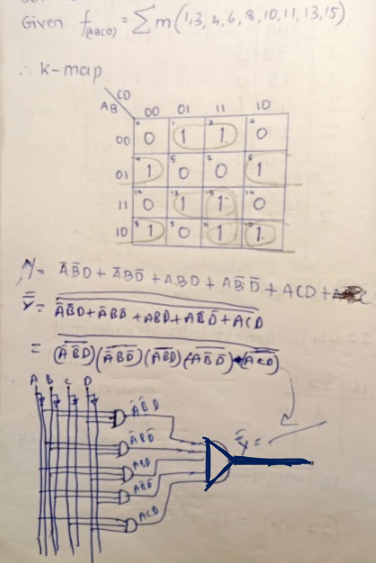 Given: f(ABCD) = ∑m(1,3,4,6,8,10,11,13,15)
∴ K-map
CD
AB 00 01 11 10
00 0 1 1 0
01 1 0 0 1
11 0 1 1 0
10 1 0 1 1
Y = A̅B̅D + A̅BD̅ + ABD + AB̅D̅ + ACD +
Y̿ = A̅B̅D + A̅BD̅ + ABD + AB̅D̅ + ACD
= (A̅B̅D)(A̅BD̅)(ABD)(AB̅D̅)(ACD)
A B C D
A̅B̅D
A̅BD̅
Y̿ =
ABD
AB̅D̅
ACD